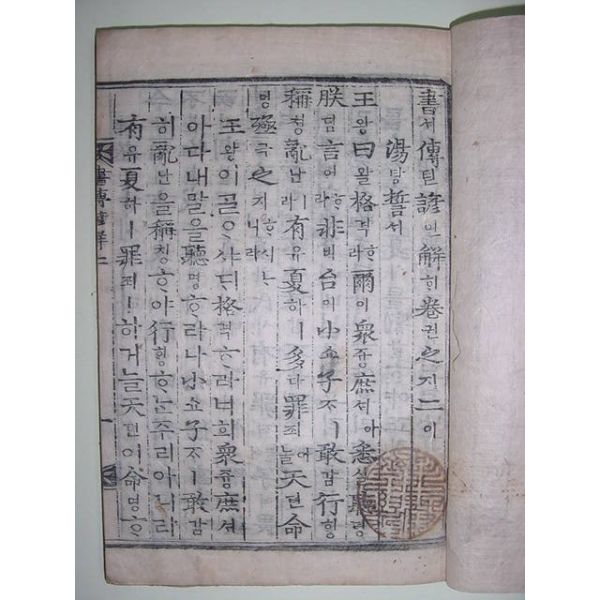 書셔傳뎐諺언解ᄒᆡ卷권之지二이
湯탕誓셔
王왕曰왈格격ᄒᆞ라爾이衆즁庶셔아悉실聽텽
朕딤言언ᄒᆞ라非비台이小쇼子ᄌᆞㅣ敢감行ᄒᆡᆼ
稱칭亂난이라有유夏하ㅣ多다罪죄어늘天텬命
명殛극之지ᄒᆞ시니라
王왕이ᄀᆞᆯᄋᆞ샤ᄃᆡ格격ᄒᆞ라너희衆즁庶셔
아다내말을聽텽ᄒᆞ라나小쇼子ᄌᆞㅣ敢감
히亂난을稱칭ᄒᆞ야行ᄒᆡᆼᄒᆞᄂᆞᆫ주리아니라
有유夏하ㅣ罪죄ㅣ하거늘天텬이命명ᄒᆞ
書傳諺解二